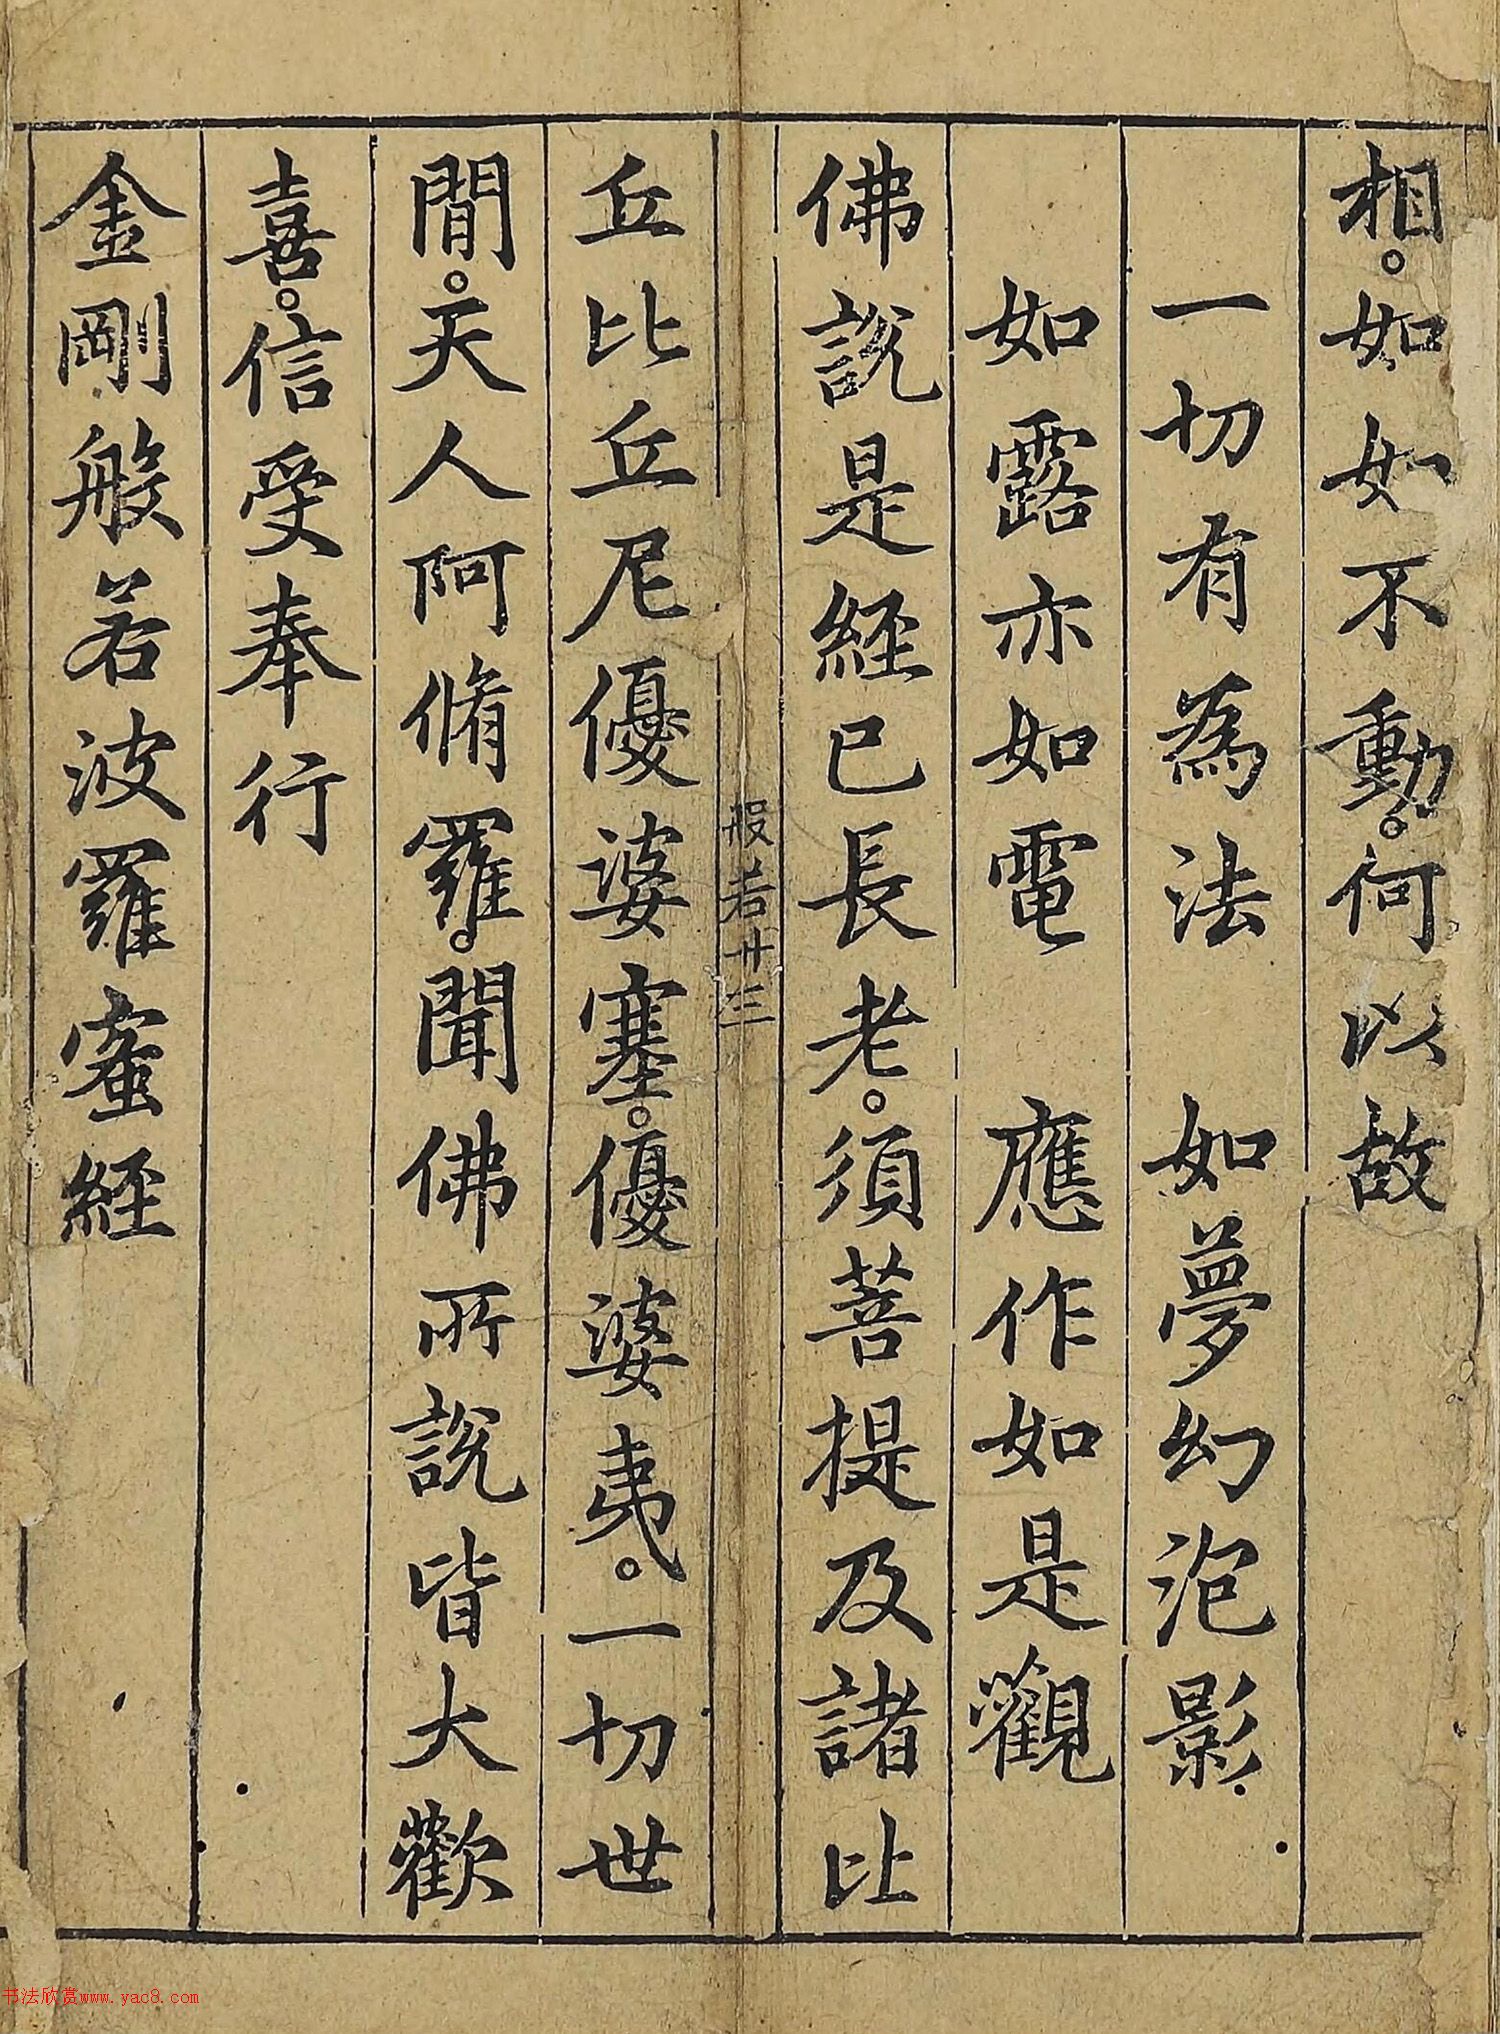 相。如如不動。何以故
一切有為法　如夢幻泡影
如露亦如電　應作如是觀
佛說是經已長老。須菩提及諸比
般若廿三
丘比丘尼優婆塞。優婆夷。一切世
間。天人阿脩羅。聞佛所說皆大歡
喜。信受奉行
金剛般若波羅蜜經
书法欣赏www.yac8.com